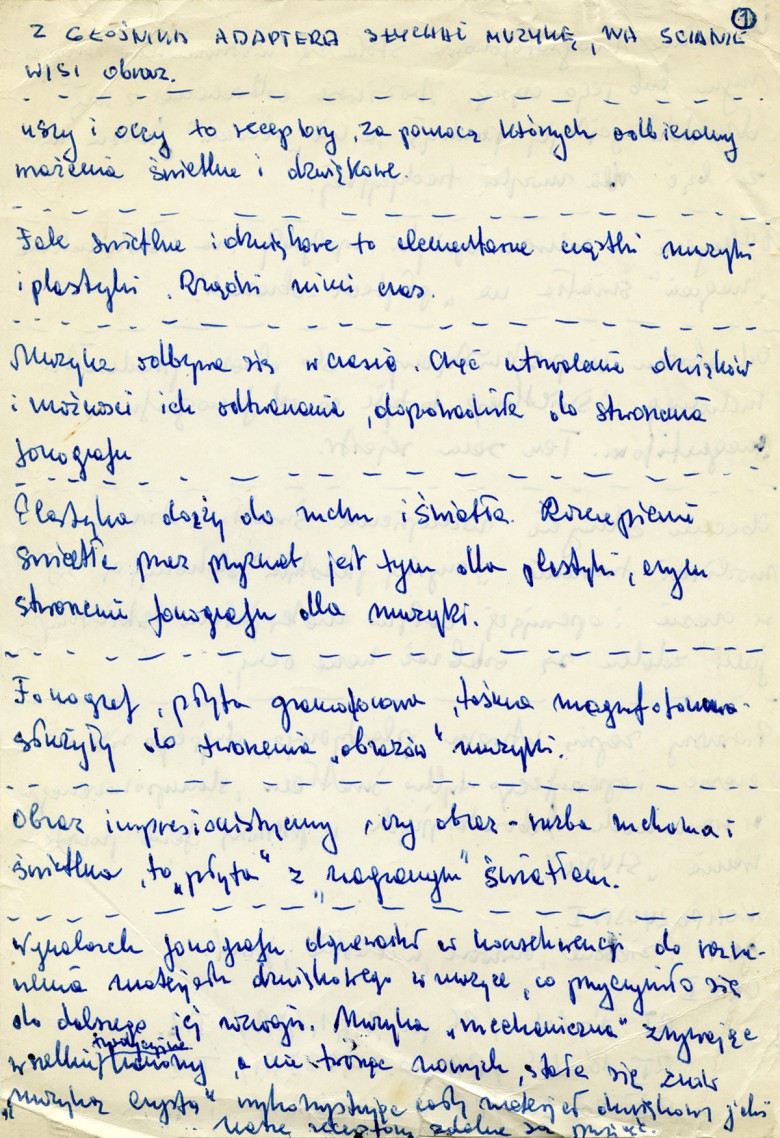 1
Z GŁOŚNIKA ADAPTERA SŁYCHAĆ MUZYKĘ, NA ŚCIANIE
WISI obraz.
uszy i oczy to receptory, za pomocą których odbieramy
wrażenia świetlne i dźwiękowe.
Fale świetlne i dźwiękowe to elementarne cząstki muzyki
i plastyki. Rządzi nimi czas.
Muzyka odbywa się w czasie. Chęć utrwalenia dźwięków
i możności ich odtwarzania, doprowadziła do stworzenia
fonografu
Plastyka dąży do ruchu i światła. Rozszczepienie
światła przez pryzmat jest tym dla plastyki, czym
stworzenie fonografu dla muzyki.
Fonograf, płyta gramofonowa, taśma magnetofonowa-
służyły do tworzenia „obrazów" muzyki.
Obraz impresjonistyczny, czy obraz-rzeźba ruchoma i
świetlna, to „płyta" z „nagranym" światłem.
Wynalazek fonografu doprowadził w konsekwencji do
materiału dźwiękowego w muzyce, co przyczyniło się
do dalszego jej rozwoju. Muzyka „mechaniczna" zrywając
tradycyjne
wszelkie kanony, a nie tworząc nowych, stała się znów
„muzyką czystą" wykorzystując cały materiał dźwiękowy jaki
nasze receptory zdolne są przyjąć.